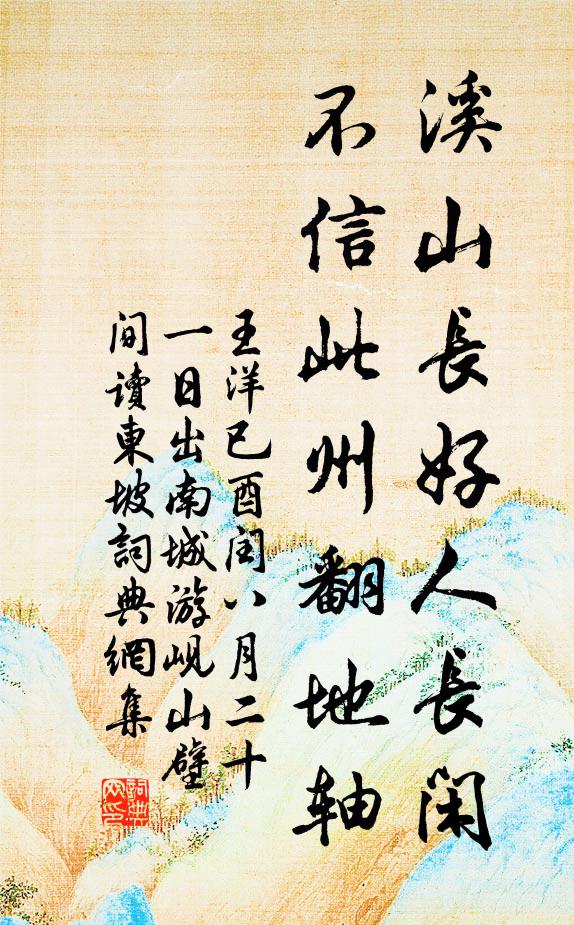 溪山長好人長閑
不信此州翻地軸
王洋已酉闰八月二十
一日出南城游岘山壁
间讀東坡詞典網集
詞典網印